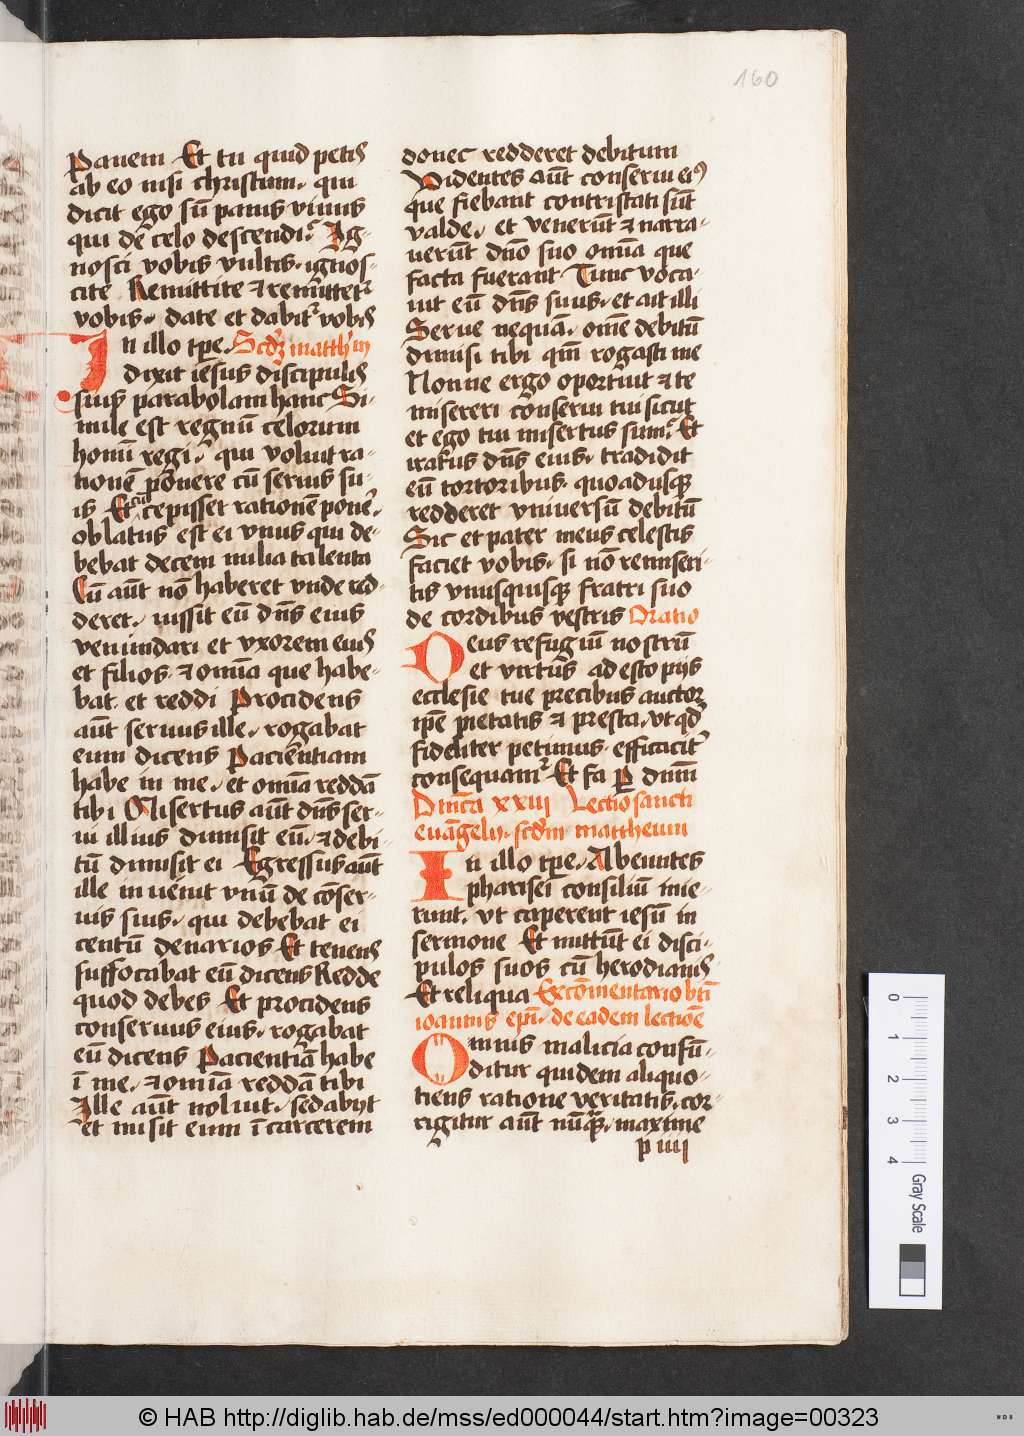 160
Panem Et tu quid petis
ab eo nisi christum. qui
dicit ego su᷃ panis vinus
qui de celo descendi. Ag-
nosci vobis vultis. ignos-
cite Remittite ⁊ remittet᷑
vobis. date et dabit᷑ vobis
In illo tp̄e. Scd᷑ matth̄m
dixit iesus discipulis
suis parabolam hanc Si-
mile est regnū celorum
homī regi. qui voluit ra-
tionē ponere cū seruis su-
is Et cū cepisset rationē ponē
oblatus est ei vnus qui de-
bebat decem milia talenta
Cū aūt nō haberet vnde red-
deret. iussit eū dn̄s eius
venundari et vxorem eius
et filios. ⁊ omīa que habe-
bat. et reddi Procidens
aūt seruus ille. rogabat
eum dicens Pacientiam
habe in me. et omīa reddā
tibi Misertus aūt dn̄s ser-
ui illius dimisit eū. ⁊ debi-
tū dimisit ei Egressus aūt
ille inuenit vnū de cōser-
uis suis. qui debebat ei
centū denarios Et tenens
suffocabat eū dicens Redde
quod debes Et procidens
conseruus eius. rogabat
eū dicens Pacientiā habe
ī me. ⁊ omīa reddā tibi
Ille aūt noluit. sed abijt
et misit eum ī carcerem
donec redderet debitum
Videntes aūt conserui eiꝰ
que fiebant contristati sūt
valde. et venerūt ⁊ narra-
uerūt dn̄o suo omīa que
facta fuerant. Tunc voca-
uit eū dn̄s suus. et ait illi
Serue nequā. om̄e debitū
dimisi tibi qm̄ rogasti me
Nonne ergo oportuit ⁊ te
misereri conserui tui sicut
et ego tui misertus sum. Et
iratus dn̄s eius. tradidit
eū tortoribus. quoadusqꝫ
redderet vniuersū debitū
Sic et pater meus celestis
faciet vobis. si nō remiseri-
tis vnusquisqꝫ fratri suo
de cordibus vestris Oratio
Deus refugiū nostrū
et virtus adesto pijs
ecclesie tue precibus auctor
ip̄e pietatis ⁊ presta. vt qd̄
fideliter petimus. efficacit᷑
consequam᷑ Et fa ꝑ dnm̄
Dn̄ica xxiij Lectio sancti
euāngelij. scd̄m mattheum
In illo tp̄e. Abeuntes
pharisei consiliū inie-
runt. vt caperent iesū in
sermone Et mittūt ei disci-
pulos suos cū herodianis
Et reliqua Ex cōmentario bt̄i
ioannis ep̄i. de eadem lectiōe
Omnis malicia confū-
ditur quidem aliquo-
tiens ratione veritatis. cor-
rigitur aūt nūqꝫ. maxime
p iiii
0
1
2
3
4
Gray Scale
© HAB http://diglib.hab.de/mss/ed000044/start.htm?image=00323